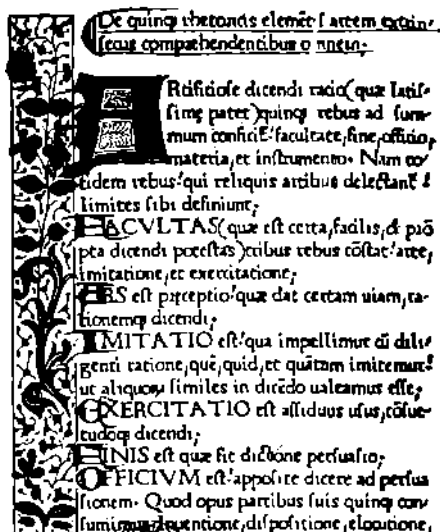 De quinqꝫ rhetoricis elemētis artem extrin-
secus compræhendentibus omnem.
ARtificiose dicendi ratio (quæ latis-
sime patet) quinqꝫ rebus ad sum-
mum conficit᷑ facultate, fine, officio,
materia, et instrumento. Nam to-
tidem rebus qui reliquis artibus delectant᷑
limites sibi definiunt,
FACVLTAS (quæ est certa, facilis, & prō
pta dicendi potestas) tribus rebus cōstat arte,
imitatione, et exercitatione,
ARS est præceptio quæ dat certam uiam, ra-
tionemqꝫ dicendi,
IMITATIO est qua impellimur cū dili-
genti ratione, quē, quid, et quātum imitemur
ut aliquoꝝ similes in dicēdo ualeamus esse,
EXERCITATIO est assiduus usus, cōsue-
tudoqꝫ dicendi,
FINIS est quæ fit dictione persuasio,
OFFICIVM est apposite dicere ad persua
sionem. Quod opus partibus suis quinqꝫ con
sumimus inuentione, dispositione, elocutione,